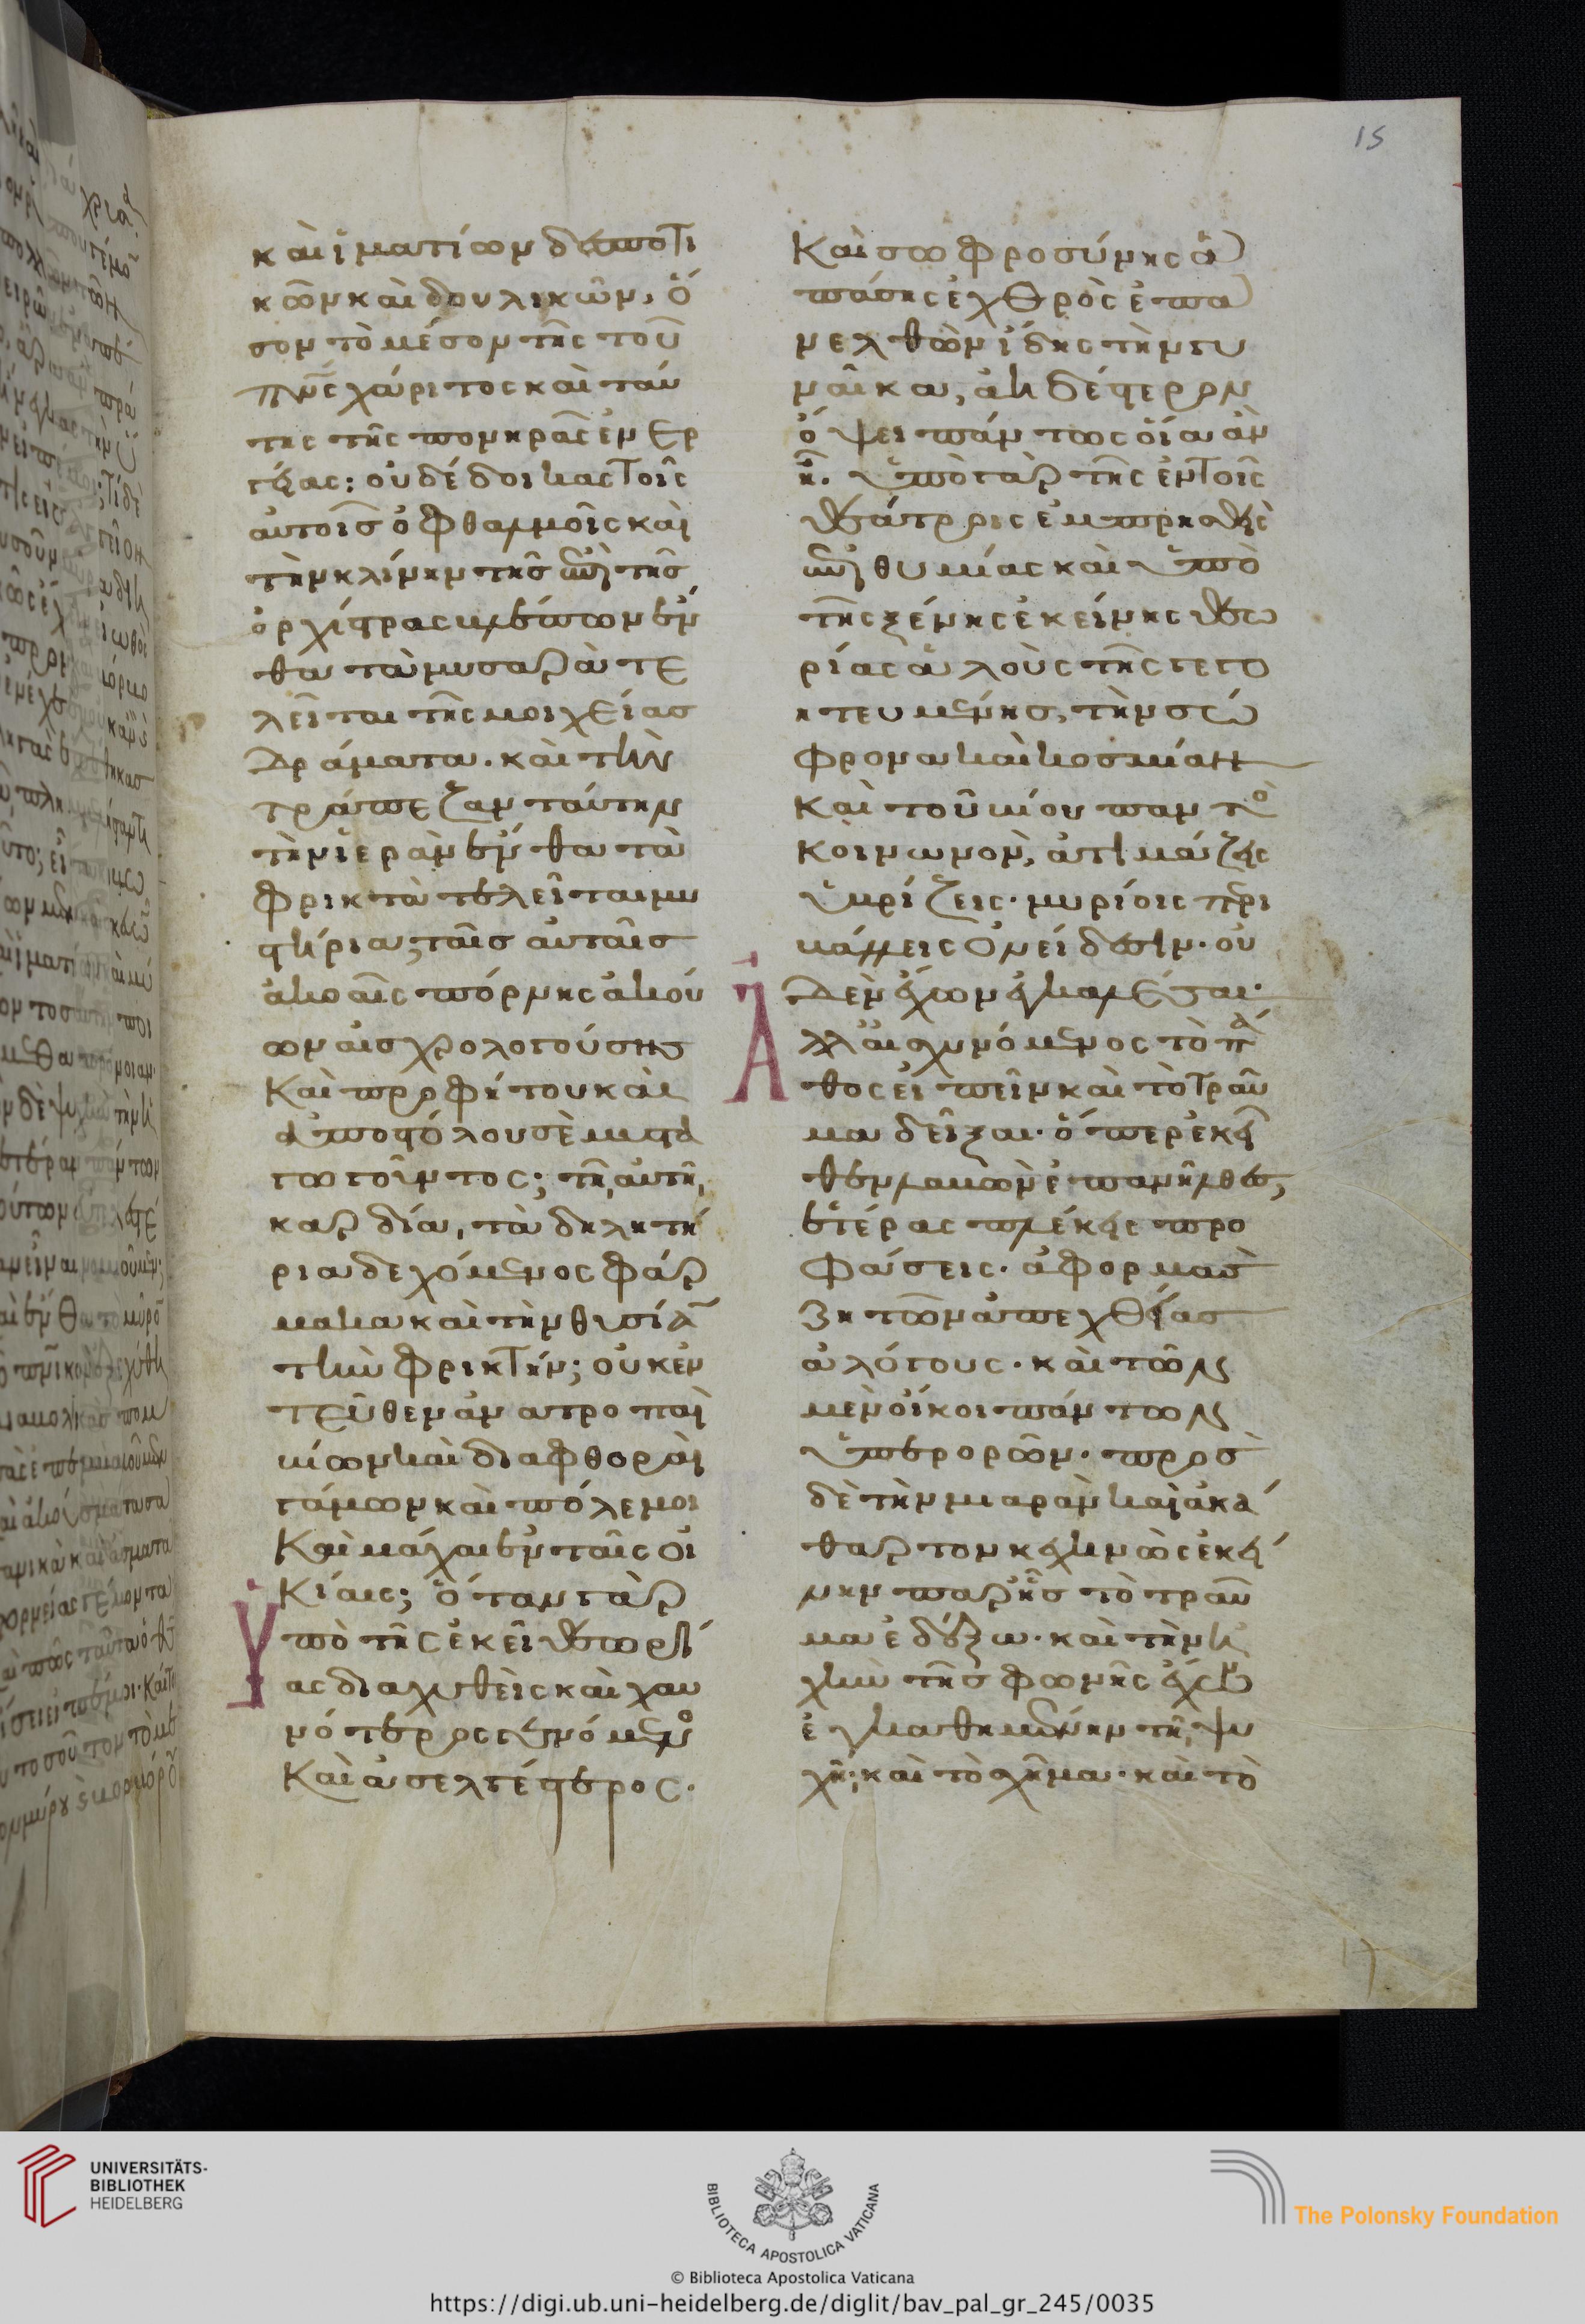 15
καὶ ἱματίων δεσποτι
κῶν καὶ δουλικῶν, ὅ
σον τὸ μέσον τῆς τοῦ
πνς χάριτος καὶ ταύ
της τῆς πονηρᾶς ἐνερ
γείας: οὐ δέδοικας τοῖς
αὐτοῖς ὀφθαλμοῖς καὶ
τὴν κλίνην τῆς ἐπὶ τῆς
ὀρχήστρας βλέπων ἔν
θα τὰ μυσαρὰ τε
λεῖται τῆς μοιχείας
δράματα. καὶ τὴν
τράπεζαν ταύτην
τὴν ἱερὰν ἔνθα τὰ
φρικτὰ τελεῖται μυ
στήρια; ταῖς αὐταῖς
ἀκοαῖς πόρνης ἀκού
ων αἰσχρολογούσης
καὶ προφήτου καὶ
ἀποστόλου σὲ μυστα
γωγοῦντος; τῇ αὐτῇ
καρδία, τὰ δηλητή
ρια δεχόμενος φάρ
μακα καὶ τὴν θυσίαν
τὴν φρικτήν; οὐκ ἐν
τεῦθεν ἀνατροπαὶ
βίων καὶ διαφθοραὶ
γάμων καὶ πόλεμοι
καὶ μάχαι ἐν ταῖς οἰ
κίαις; ὅταν γὰρ
ὑπὸ τῆς ἐκεῖ θεωρί
ας διαχυθεὶς καὶ χαυ
νότερος γενόμενος
καὶ ἀσελγέστερος.
καὶ σωφροσύνης ἁ
πάσης ἐχθρὸς ἐπα
νελθὼν ἴδης τὴν γυ
ναῖκα, ἀηδέστερον
ὄψει πάντως οἵα ἂν
ῆ. ὑπὸ γὰρ τῆς ἐν τοῖς
θεάτροις ἐμπρησθεὶς
ἐπιθυμίας καὶ ὑπὸ
τῆς ξένης ἐκείνης θεω
ρίας ἁλοὺς τῆς γεγο
ητευμένης, τὴν σώ
φρονα καὶ κοσμίαν
καὶ τοῦ βίου παντὸ
κοινωνὸν, ἀτιμάζεις
ὑβρίζεις. μυρίοις περι
βάλλεις ὀνείδεσιν. οὐ
δὲν ἔχων ἐγκαλέσαι.
ἀλλ' αἰσχυνόμενος τὸ πά
θος εἰπεῖν καὶ τὸ τραῦ
μα δεῖξαι. ὅπερ ἐκεῖ
θεν λαβὼν ἐπανῆλθες,
ἑτέρας πλέκεις προ
φάσεις. ἀφορμὰς
ζητῶν ἀπεχθείας
ἀλόγους. καὶ τῶν
μὲν οἴκοι πάντων
ὑπερορῶν. πρὸς
δὲ τὴν μιαρὰν καὶ ἀκά
θαρτον κεχηνὼς ἐκεί
νην παρ' ἧς τὸ τραῦ
μα ἐδέξω. καὶ τὴν ἠ
χὴν τῆς φωνῆς ἔχων
ἐγκαθημένην τῇ ψυ
χῇ; καὶ τὸ σχῆμα. καὶ τὸ
17
UNIVERSITÄTS-
BIBLIOTHEK
HEIDELBERG
BIBLIOTECA APOSTOLICA VATICANA
The Polonsky Foundation
© Biblioteca Apostolica Vaticana
https://digi.ub.uni-heidelberg.de/diglit/bav_pal_gr_245/0035